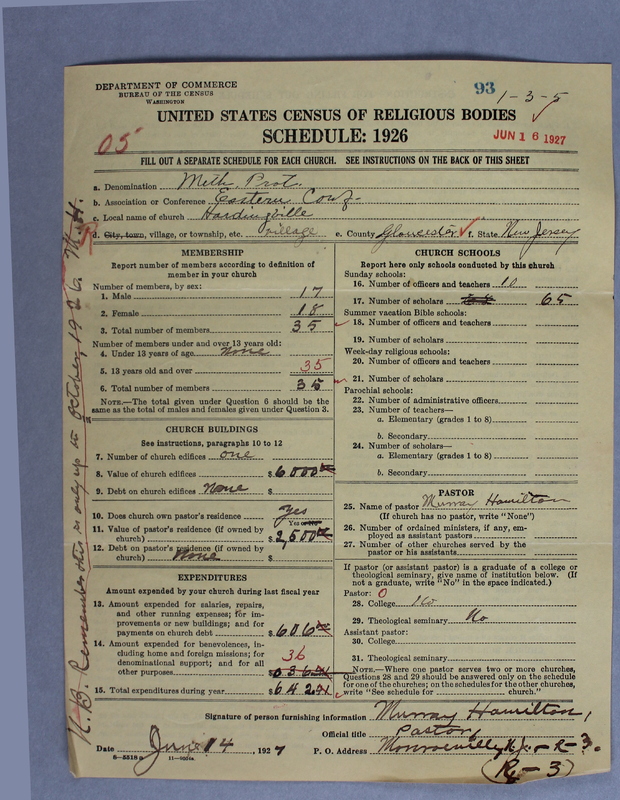 DEPARTMENT OF COMMERCE
BUREAU OF THE CENSUS
WASHINGTON
93
1-3-5
UNITED STATES CENSUS OF RELIGIOUS BODIES
SCHEDULE: 1926
05
JUN 16 1927
FILL OUT A SEPARATE SCHEDULE FOR EACH CHURCH. SEE INSTRUCTIONS ON THE BACK OF THIS SHEET
a. Denomination Meth. Prot.
b. Association or Conference Eastern Conf-
c. Local name of church Hardingville
d. City, town, village, or township, etc. village e. County Gloucester f. State New Jersey
MEMBERSHIP
Report number of members according to definition of
member in your church
Number of members, by sex:
1. Male 17
2. Female 18
3. Total number of members 35
Number of members under and over 13 years old:
4. Under 13 years of age none
5. 13 years old and over 35
6. Total number of members 35
NOTE.—The total given under Question 6 should be
same as the total of males and females given under Question 3.
CHURCH BUILDINGS
See instructions, paragraphs 10 to 12
7. Number of church edifices one
8. Value of church edifices $6000
9. Debt on church edifices None $
10. Does church own pastor's residence? yes
Yes or No
11. Value of pastor's residence (if owned by
church) $2,500
12. Debt on pastor's residence (if owned by
church) None $
EXPENDITURES
Amount expended by your church during last fiscal year
13. Amount expended for salaries, repairs,
and other running expenses; for im-
provements or new buildings; and for
payments on church debt $606
14. Amount expended for benevolences, in-
cluding home and foreign missions; for
denominational support; and for all
other purposes 36
15. Total expenditures during year $642
CHURCH SCHOOLS
Report here only schools conducted by this church
Sunday schools:
16. Number of officers and teachers 10
17. Number of scholars 65
Summer vacation Bible schools:
18. Number of officers and teachers
19. Number of scholars
Week-day religious schools:
20. Number of officers and teachers
21. Number of scholars
Parochial schools:
22. Number of administrative officers
23. Number of teachers—
a. Elementary (grades 1 to 8)
b. Secondary
24. Number of scholars—
a. Elementary (grades 1 to 8)
b. Secondary
PASTOR
25. Name of pastor Murray Hamilton
(If church has no pastor, write "None")
26. Number of ordained ministers, if any, em-
ployed as assistant pastors
27. Number of other churches served by the
pastor or his assistants
If pastor (or assistant pastor) is a graduate of a college or
theological seminary, give name of institution below. (If
not a graduate, write "No" in the space indicated.)
Pastor: 0
28. College No
29. Theological seminary No
Assistant pastor:
30. College
31. Theological seminary
NOTE.—Where one pastor serves two or more churches,
Questions 28 and 29 should be answered only on the schedule
for one of the churches; on the schedules for the other churches,
write "See schedule for church."
Signature of person furnishing information Murray Hamilton,
Official title Pastor,
Date June 14, 1927 P. O. Address Monroeville, N.J. - R-3.
(R-3)
8-5518a 11-9024a
N.B. Remember this is only up to October, 1926. M.H.